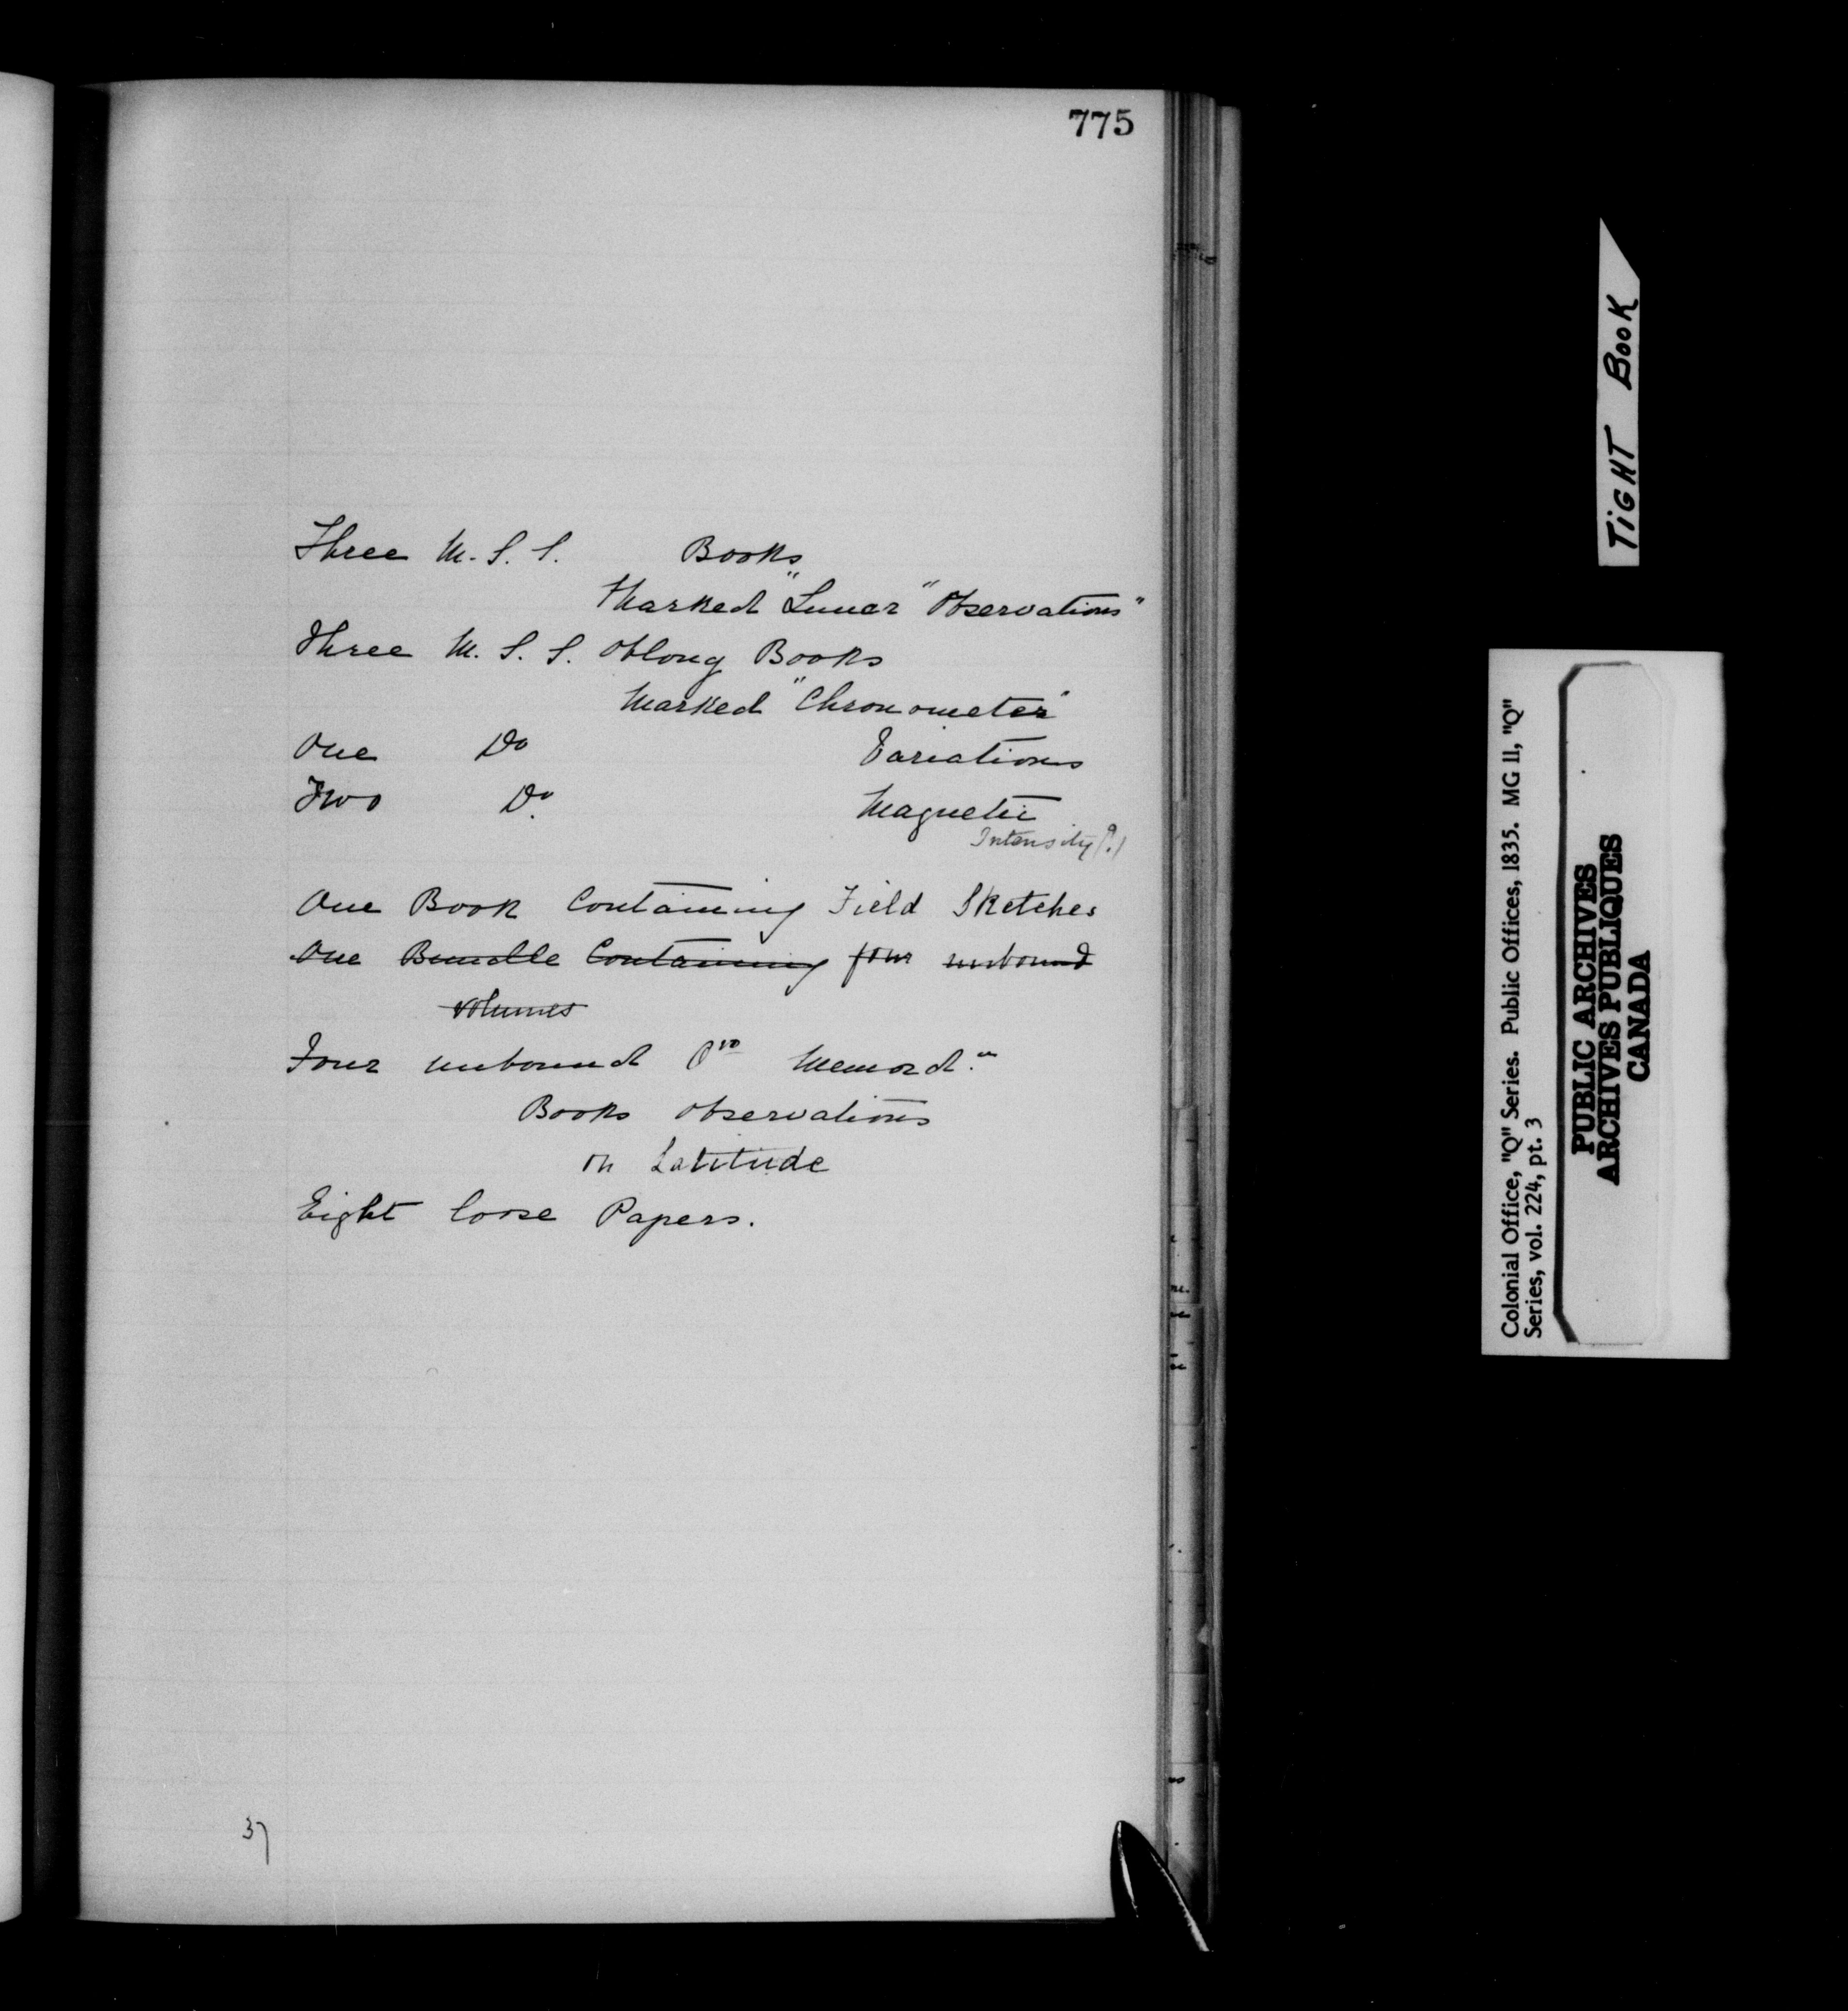 775
Three M.S.S. Books
Marked "Lunar" "Observations"
Three M.S.S. Oblong Books
Marked "Chronometer"
One Do Variations
Two Do. Magnetic
Intensity (?)
One Book Containing Field Sketches
One Bundle Containing four unbound
volumes
Four unbound 8vo Memordm
Books observations
on Latitude
Eight loose Papers.
37
TiGHT BooK
Colonial Office, "Q" Series. Public Offices, 1835. MG 11, "Q"
Series, vol. 224, pt. 3
PUBLIC ARCHIVES
ARCHIVES PUBLIQUES
CANADA